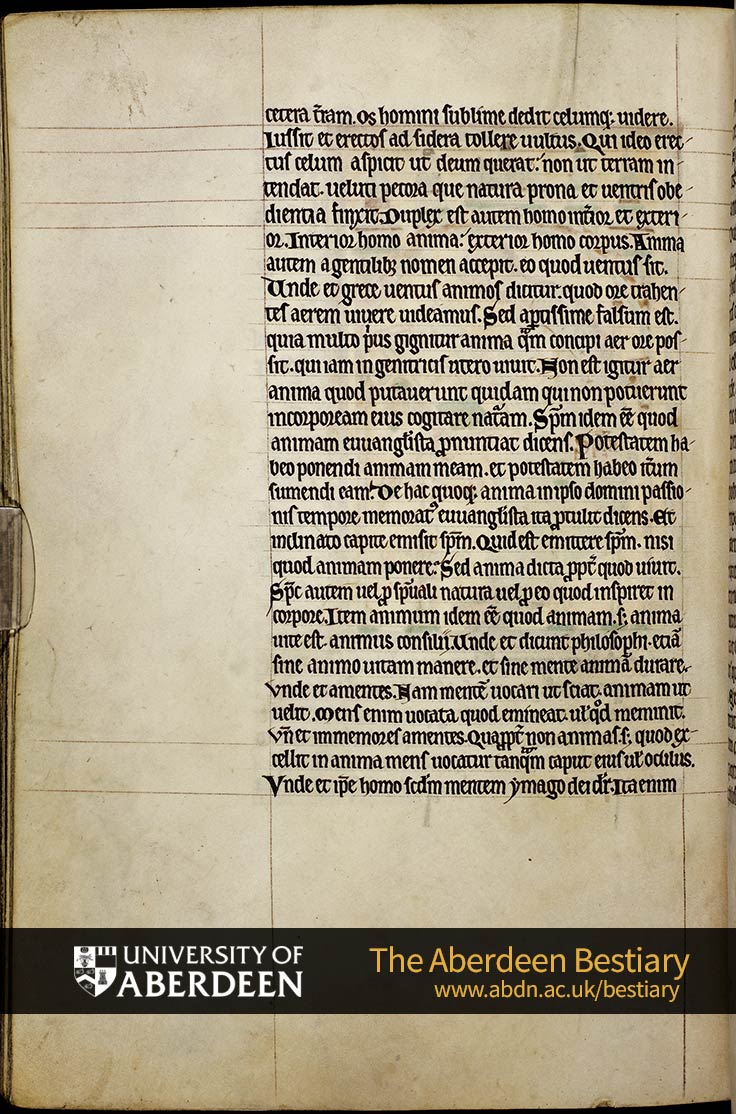 cetera t̄ram. Os homini sublime dedit celumq; uidere.
Iussit et erectos ad sidera tollere uultus. Qui ideo erec-
tus celum aspicit ut deum querat: non ut terram in-
tendat. ueluti pecora que natura prona et uentris obe-
dientia finxit. Duplex est autem homo int̄ior et exteri-
or. Interior homo anima: exterior homo corpus. Anima
autem a gentilib; nomen accepit. eo quod uentus sit.
Unde et grece uentus animos dicitur. quod ore trahen-
tes aerem uiuere uideamus. Sed aꝑtissime falsum est.
quia multo p̓us gignitur anima q̄m concipi aer ore pos-
sit. qui iam in genitricis utero uiuit. Non est igitur aer
anima quod putauerunt quidam qui non potuerunt
incorpoream eius cogitare nat̄am. Sp̄m idem ēē quod
animam euuanglista ꝓnuntiat dicens. Potestatem ha-
beo ponendi animam meam. et potestatem habeo it̄um
sumendi eam. De hac quoq; anima in ipso domini passio-
nis tempore memorat᷒ euuanglista ita ꝓtulit dicens. Et
inclinato capite emisit sp̄m. Quid est emittere sp̄m. nisi
quod animam ponere: Sed anima dicta ꝓpt̄ quod uiuit.
Sp̄c autem uel ꝓ sp̄uali natura uel ꝓ eo quod inspiret in
corpore. Item animum idem ēē quod animam. s; anima
uite est. animus consilii. Unde et dicunt philosophi. etiā
sine animo uitam manere. et sine mente animā durare.
Vnde et amentes. Nam mentē uocari ut sciat. animam ut
uelit. Mens enim uocata quod emineat. ul̕ qd̕ meminit.
Vn̄ et immemores amentes. Quaꝓpt̄ non anima s; quod ex-
cellit in anima mens uocatur tanq̄m caput eius ul̕ oculus.
Vnde et ip̄e homo scd̄m mentem ymago dei dr̄. Ita enim
UNIVERSITY OF
ABERDEEN
The Aberdeen Bestiary
www.abdn.ac.uk/bestiary